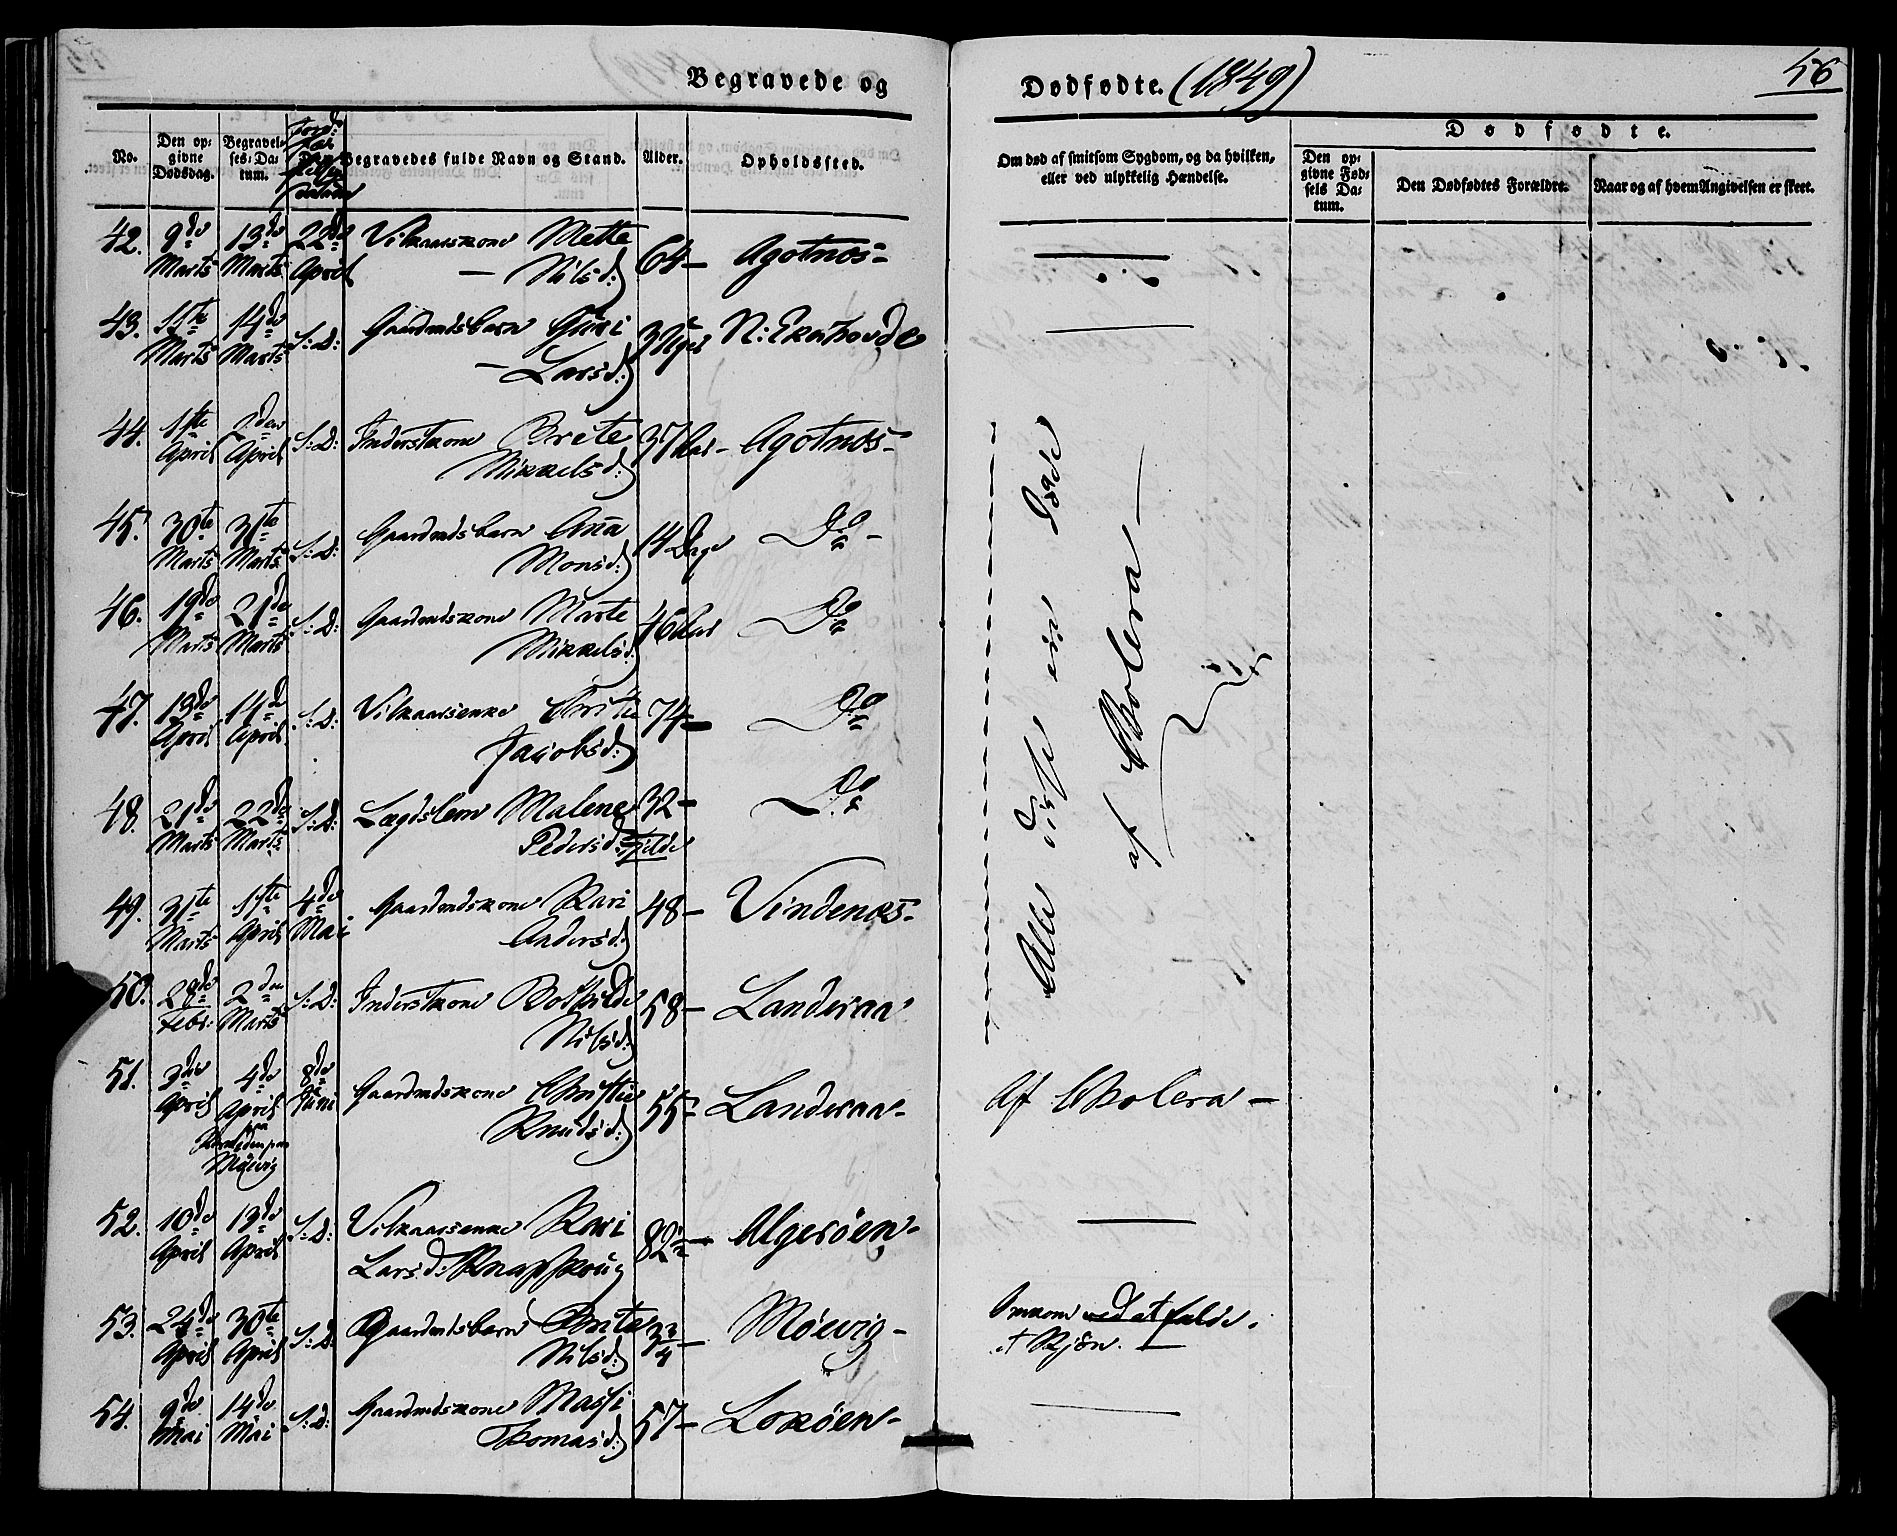 Begravede og Dødfødte. (1849) 56
No. Den opgivne Dødsdag. Begravelses-Datum. Den Begravedes fulde Navn og Stand. Alder. Opholdssted. Om død af smitsom Sygdom, og da hvilken, eller ved ulykkelig Hændelse.
Dødfødte.
Den opgivne Fødsels Datum. Den Dødfødtes Forældre. Naar og af hvem Angivelsen er skeet.
42. 9de Marts 13de Marts 22de April Vilkaarskone Mette Nilsd: 64 – Agotnæs –
43. 11te Marts 14de Marts S: D: Gaardmdsbarn Guri Larsd: 3 Uger N: Ekerhovde
44. 1ste April April S: D: Inderstkone Brite Mikkelsd: 37 Aar – Agotnæs –
45. 30te Marts 31te Marts S: D: Gaardmdsbarn Anna Monsd: 14 Dage Do –
46. 19de Marts 21de Marts S: D: Gaardmdskone Marte Mikkelsd: 46 Aar Do
47. 13de April 14de April S: D: Vilkaarsenke Christi Jacobsd: 74 – Do
48. 21de Marts 22de Marts S: D: Lægdslem Malene Pedersd: 32 – Do
49. 31te Marts 1ste April 4de Mai Gaardmdskone Kari Andersd: 48 – Vindenæs –
50. 28de Febr: 2den Marts S: D: Inderstkone Bothilde Nilsd: 58 – Landeraa
Alle disse ere døde
af Cholera –
51. 3die April 4de April 8de Juni Gaardmdskone Christie Knudsd: 55 – Landeraa – Af Cholera –
paa Møvig
52. 10de April 13de April S: D: Vilkaarsenke Kari Larsd: Knapskoug 82 – Algerøen –
53. 24de April 30te April S: D: Gaardmdsbarn Brite Nilsd: 3/4 – Møvig – Omkom ved at falde i Sjøen. –
54. 9de Mai 14de Mai S: D: Gaardmdskone Massi Thomasd: 57 – Loxøen –